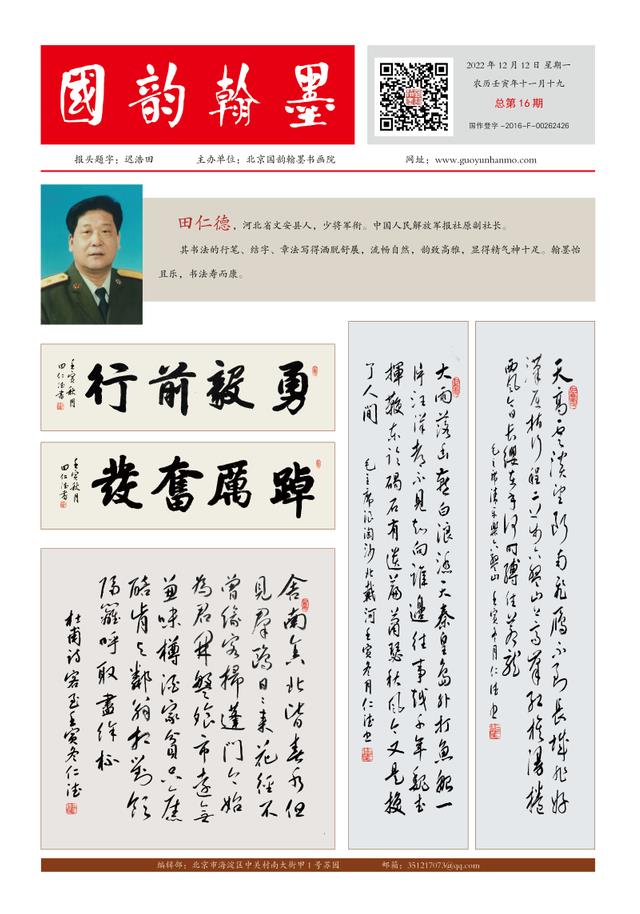 國韵翰墨
2022年12月12日 星期一
农历壬寅年十一月十九
总第16期
国作登字-2016-F-00262426
报头题字：迟浩田 主办单位：北京国韵翰墨书画院 网址：www.guoyunhanmo.com
田仁德，河北省文安县人，少将军衔。中国人民解放军报社原副社长。
其书法的行笔、结字、章法写得洒脱舒展，流畅自然，韵致高雅，显得精气神十足。翰墨怡
且乐，书法寿而康。
勇毅前行
壬寅秋月
田仁德書
踔厲奮發
壬寅秋月
田仁德書
天高雲淡望斷南飛雁不到長城非好
漢屈指行程二萬六盤山上高峰紅旗漫捲
西風今日長纓在手何時縛住蒼龍
毛主席清平樂六盤山 壬寅十月仁德书
大雨落幽燕白浪滔天秦皇島外打魚船一
片汪洋都不見知向誰邊往事越千年魏武
揮鞭東臨碣石有遺篇蕭瑟秋風今又是換
了人間
毛主席浪淘沙北戴河壬寅冬月仁德书
舍南舍北皆春水但
見群鷗日日來花徑不
曾緣客掃蓬門今始
為君開盤飧市遠無
兼味樽酒家貧只舊
醅肯與鄰翁相對飲
隔籬呼取盡餘杯
杜甫詩客至壬寅冬仁德
编辑部：北京市海淀区中关村南大街甲1号苏园 邮箱：351217073@qq.com